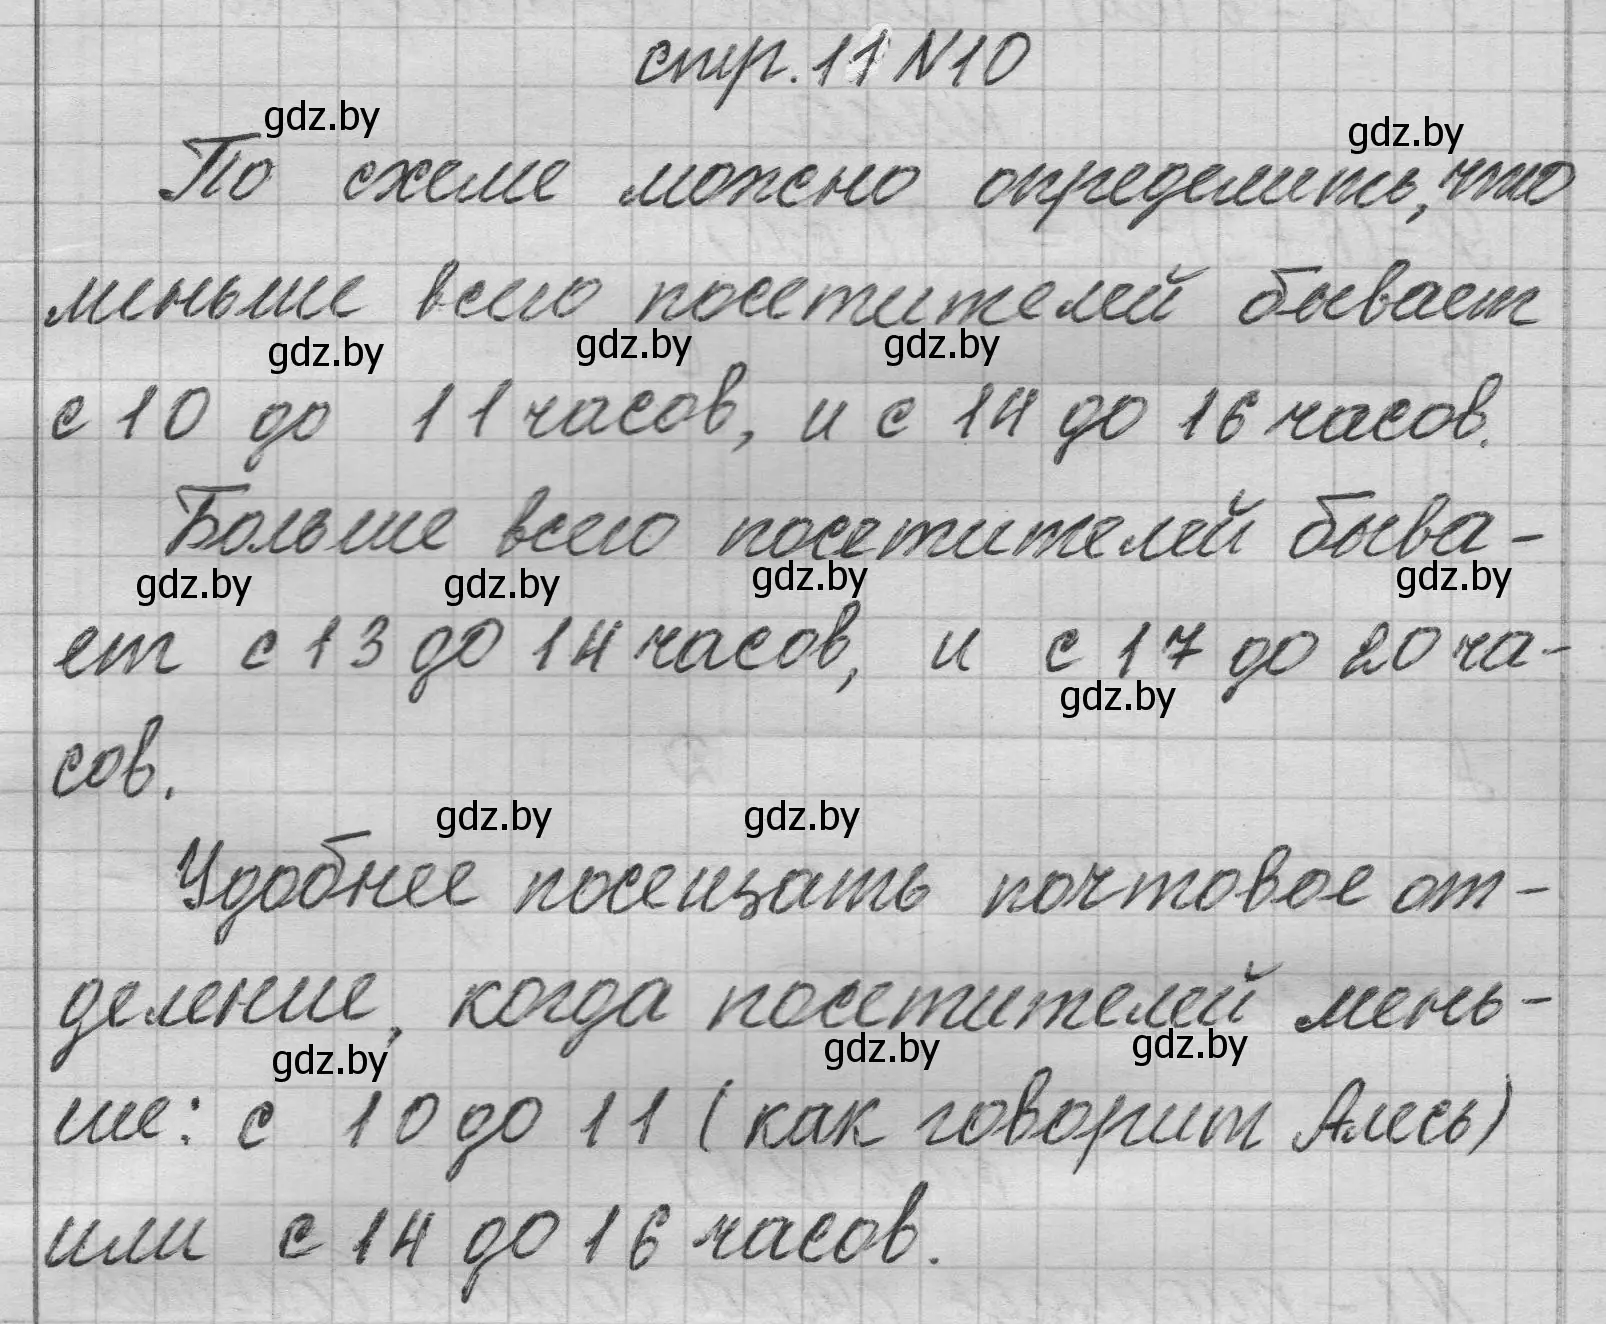 стр. 11 №10
gdz.by
gdz.by
По схеме можно определить, что
меньше всего посетителей бывает
gdz.by gdz.by gdz.by
с 10 до 11 часов, и с 14 до 16 часов.
Больше всего посетителей быва-
gdz.by gdz.by gdz.by gdz.by
ет с 13 до 14 часов, и с 17 до 20 ча-
gdz.by
сов.
gdz.by gdz.by
Удобнее посещать почтовое от-
деление, когда посетителей мень-
gdz.by gdz.by gdz.by
ше: с 10 до 11 (как говорит Алесь)
или с 14 до 16 часов.